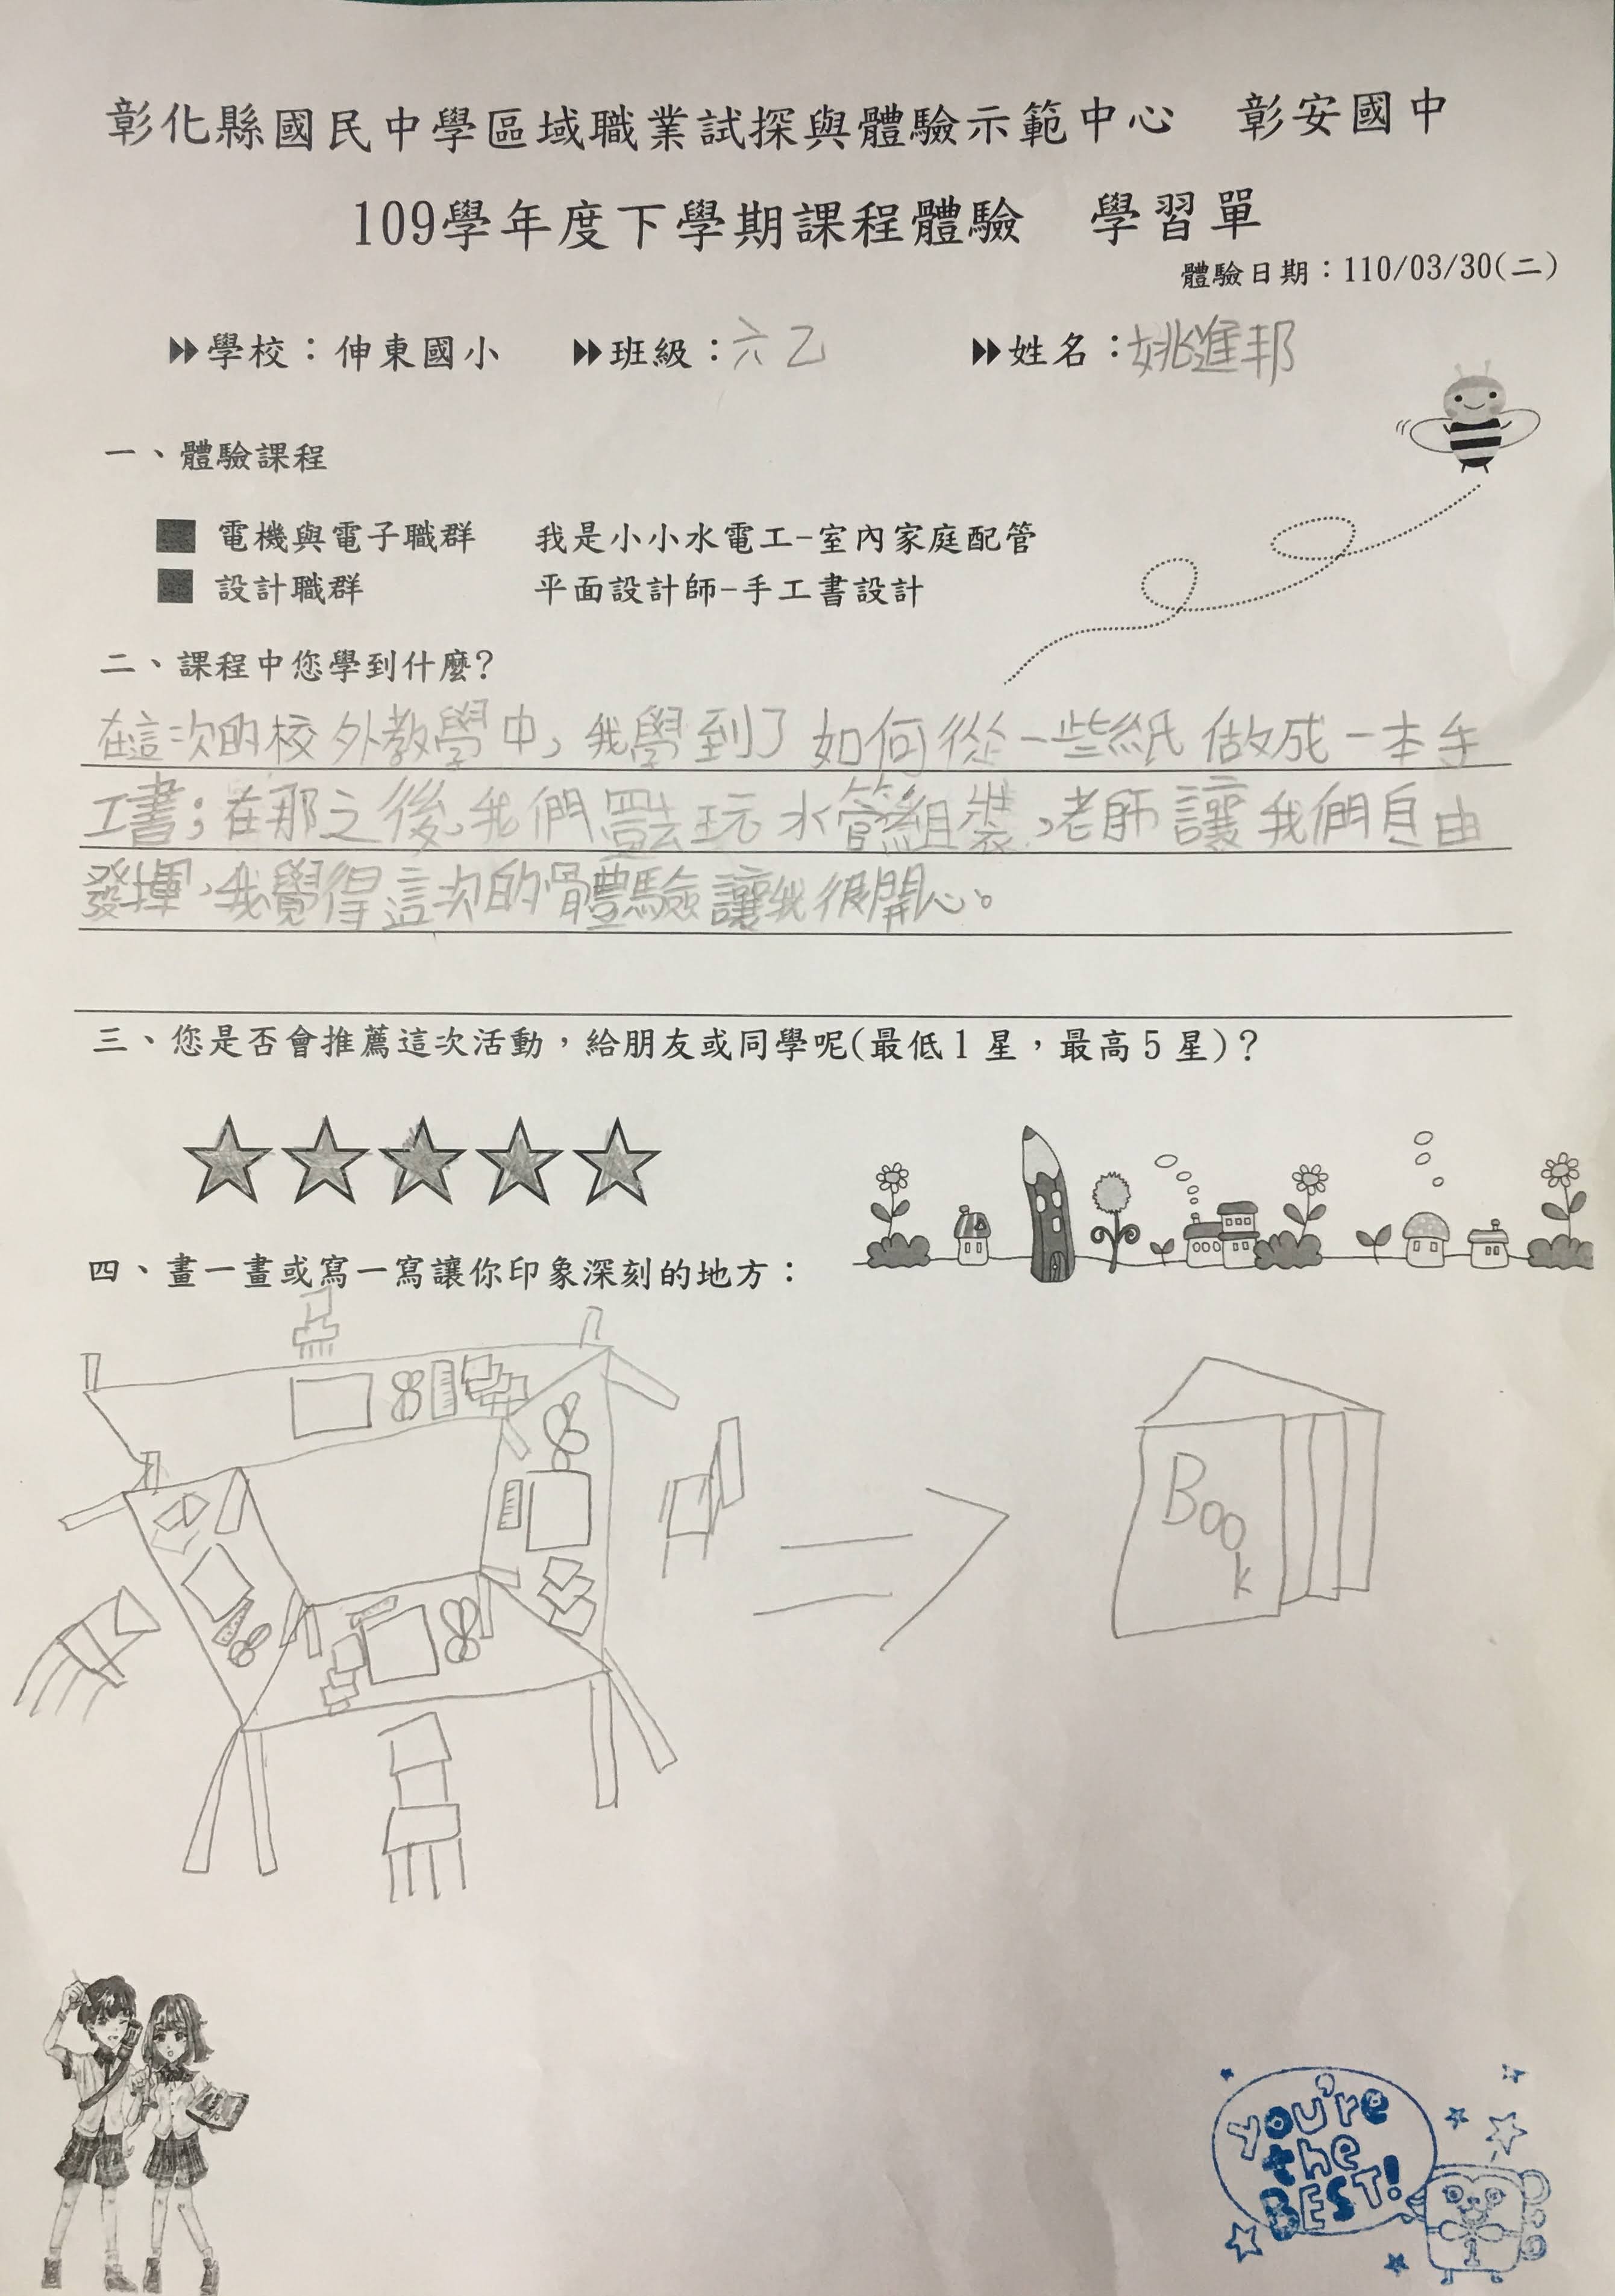 彰化縣國民中學區域職業試探與體驗示範中心　彰安國中
109學年度下學期課程體驗　學習單
體驗日期：110/03/30(二)
學校：伸東國小　班級：六乙　姓名：姚進邦
一、體驗課程
■ 電機與電子職群　我是小小水電工-室內家庭配管
■ 設計職群　平面設計師-手工書設計
二、課程中您學到什麼?
在這次的校外教學中，我學到了如何從一些紙做成一本手
工書；在那之後，我們去玩水管組裝，老師讓我們自由
發揮，我覺得這次的體驗讓我很開心。
三、您是否會推薦這次活動，給朋友或同學呢(最低1星，最高5星)?
四、畫一畫或寫一寫讓你印象深刻的地方：
Book
you're
the
BEST!
1